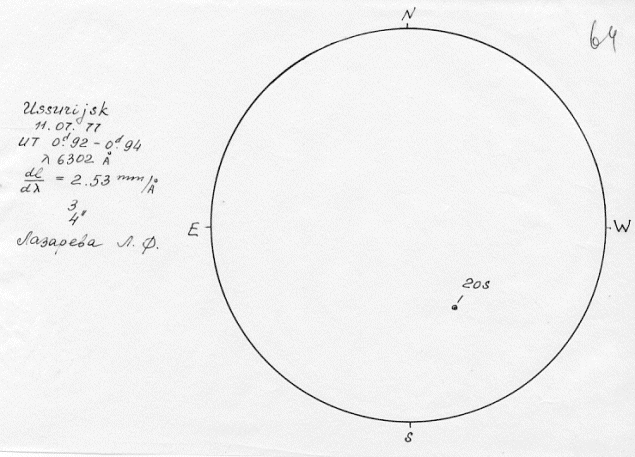 N
64
Ussurijsk
11.07.77
UT 0ᵈ.92 - 0ᵈ.94
λ 6302 Å
dl/dλ = 2.53 mm/Å
3
4"
Лазарева Л. Ф.
E
W
20s
S